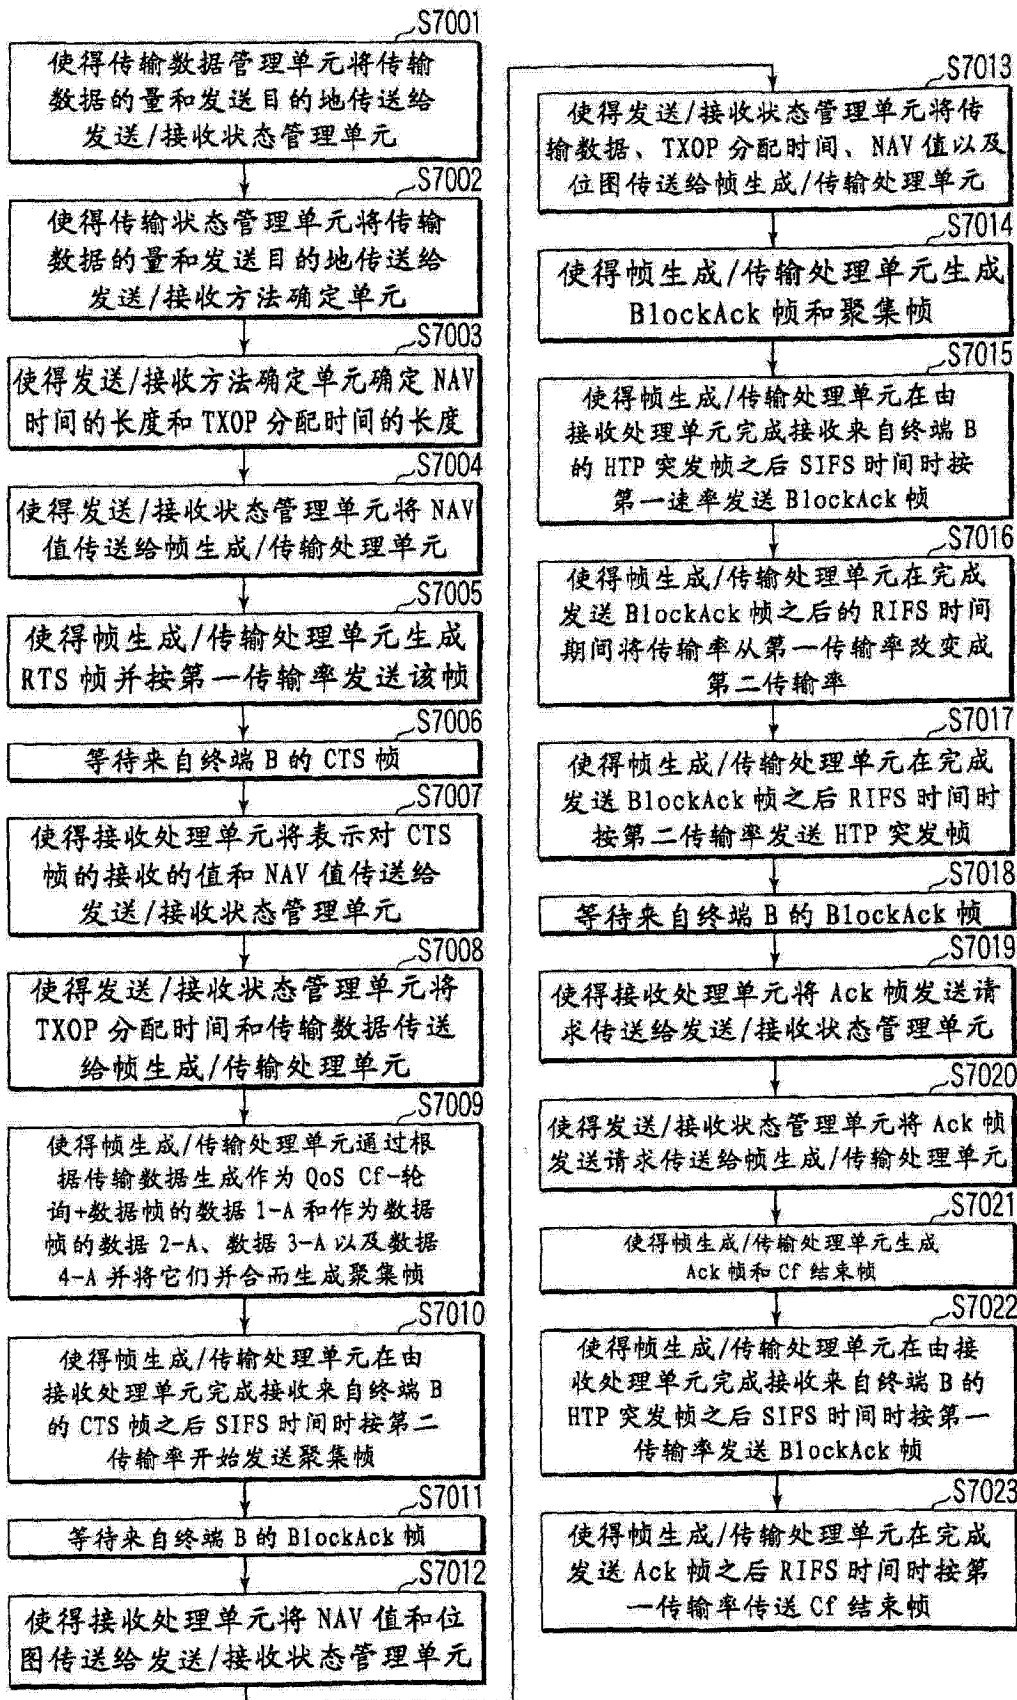 S7001
使得传输数据管理单元将传输
数据的量和发送目的地传送给
发送/接收状态管理单元
S7002
使得传输状态管理单元将传输
数据的量和发送目的地传送给
发送/接收方法确定单元
S7003
使得发送/接收方法确定单元确定 NAV
时间的长度和 TXOP 分配时间的长度
S7004
使得发送/接收状态管理单元将 NAV
值传送给帧生成/传输处理单元
S7005
使得帧生成/传输处理单元生成
RTS 帧并按第一传输率发送该帧
S7006
等待来自终端 B 的 CTS 帧
S7007
使得接收处理单元将表示对 CTS
帧的接收的值和 NAV 值传送给
发送/接收状态管理单元
S7008
使得发送/接收状态管理单元将
TXOP 分配时间和传输数据传送
给帧生成/传输处理单元
S7009
使得帧生成/传输处理单元通过根
据传输数据生成作为 QoS Cf-轮
询+数据帧的数据 1-A 和作为数据
帧的数据 2-A、数据 3-A 以及数据
4-A 并将它们并合而生成聚集帧
S7010
使得帧生成/传输处理单元在由
接收处理单元完成接收来自终端 B
的 CTS 帧之后 SIFS 时间时按第二
传输率开始发送聚集帧
S7011
等待来自终端 B 的 BlockAck 帧
S7012
使得接收处理单元将 NAV 值和位
图传送给发送/接收状态管理单元
S7013
使得发送/接收状态管理单元将传
输数据、TXOP 分配时间、NAV 值以及
位图传送给帧生成/传输处理单元
S7014
使得帧生成/传输处理单元生成
BlockAck 帧和聚集帧
S7015
使得帧生成/传输处理单元在由
接收处理单元完成接收来自终端 B
的 HTP 突发帧之后 SIFS 时间时按
第一速率发送 BlockAck 帧
S7016
使得帧生成/传输处理单元在完成
发送 BlockAck 帧之后的 RIFS 时间
期间将传输率从第一传输率改变成
第二传输率
S7017
使得帧生成/传输处理单元在完成
发送 BlockAck 帧之后 RIFS 时间时
按第二传输率发送 HTP 突发帧
S7018
等待来自终端 B 的 BlockAck 帧
S7019
使得接收处理单元将 Ack 帧发送请
求传送给发送/接收状态管理单元
S7020
使得发送/接收状态管理单元将 Ack 帧
发送请求传送给帧生成/传输处理单元
S7021
使得帧生成/传输处理单元生成
Ack 帧和 Cf 结束帧
S7022
使得帧生成/传输处理单元在由接
收处理单元完成接收来自终端 B 的
HTP 突发帧之后 SIFS 时间时按第一
传输率发送 BlockAck 帧
S7023
使得帧生成/传输处理单元在完成
发送 Ack 帧之后 RIFS 时间时按第
一传输率传送 Cf 结束帧